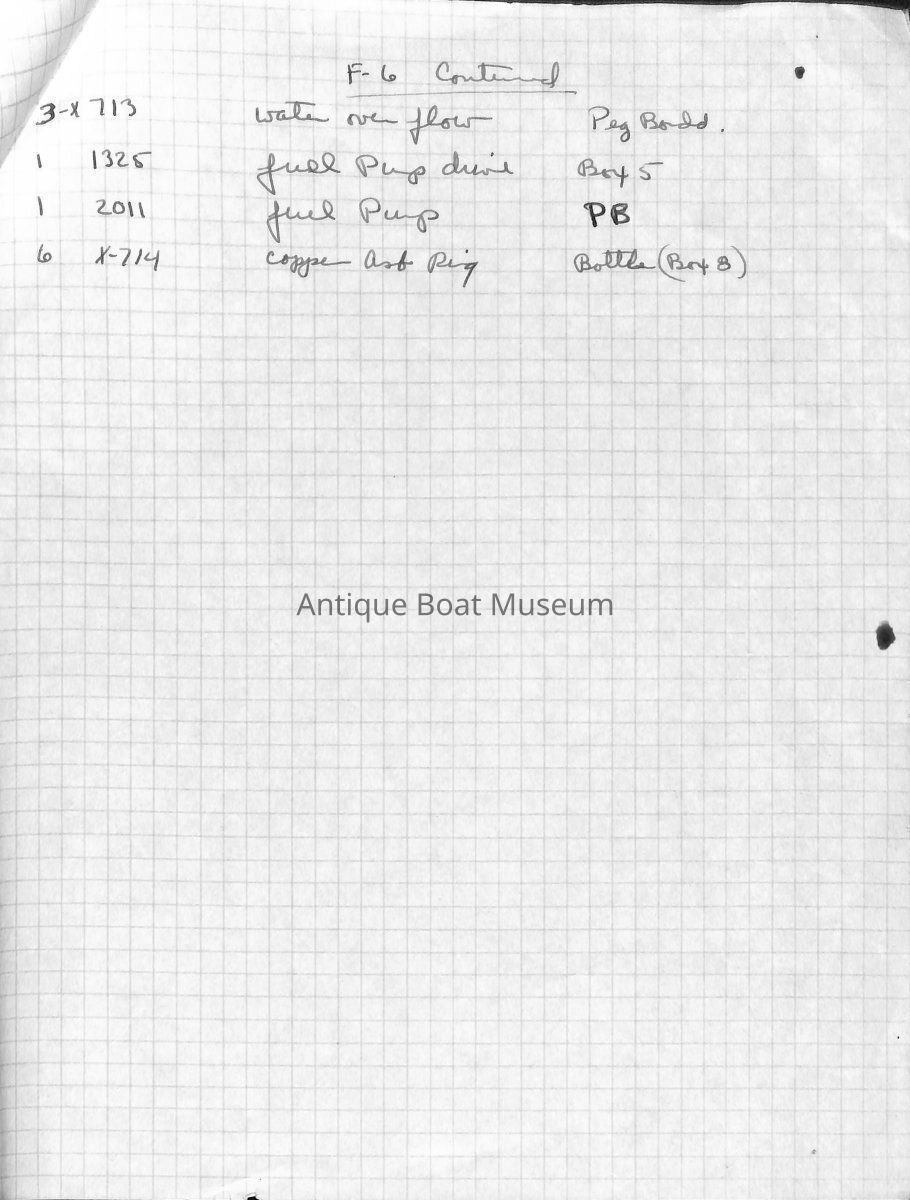 F-6 Contened
3-X 713 water over flow Peg Bordd.
1 1325 fuel Pump drive Box 5
1 2011 fuel Pump PB
6 X-714 copper Asb Ring Bottle (Box 8)
Antique Boat Museum